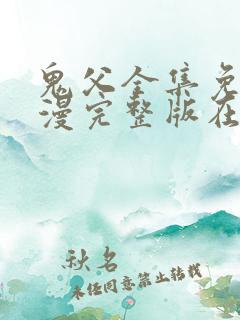 鬼父全集免
漫完整版在
秋名
未经同意禁止转载